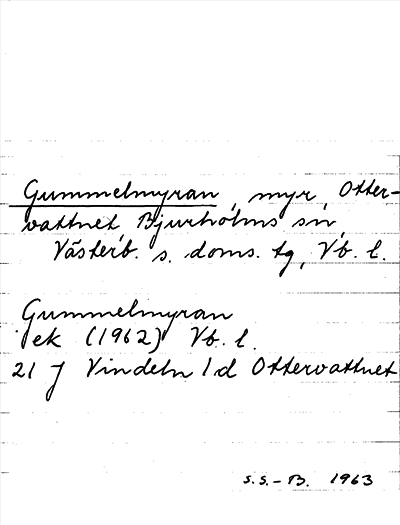 Gummelmyran, myr, Otter-
vattnet, Bjurholms sn,
Västerb. s. doms. tg, Vb. l.
Gummelmyran
ek (1962) Vb. l.
21 J Vindeln 1 d Ottervattnet
S.S.-B. 1963